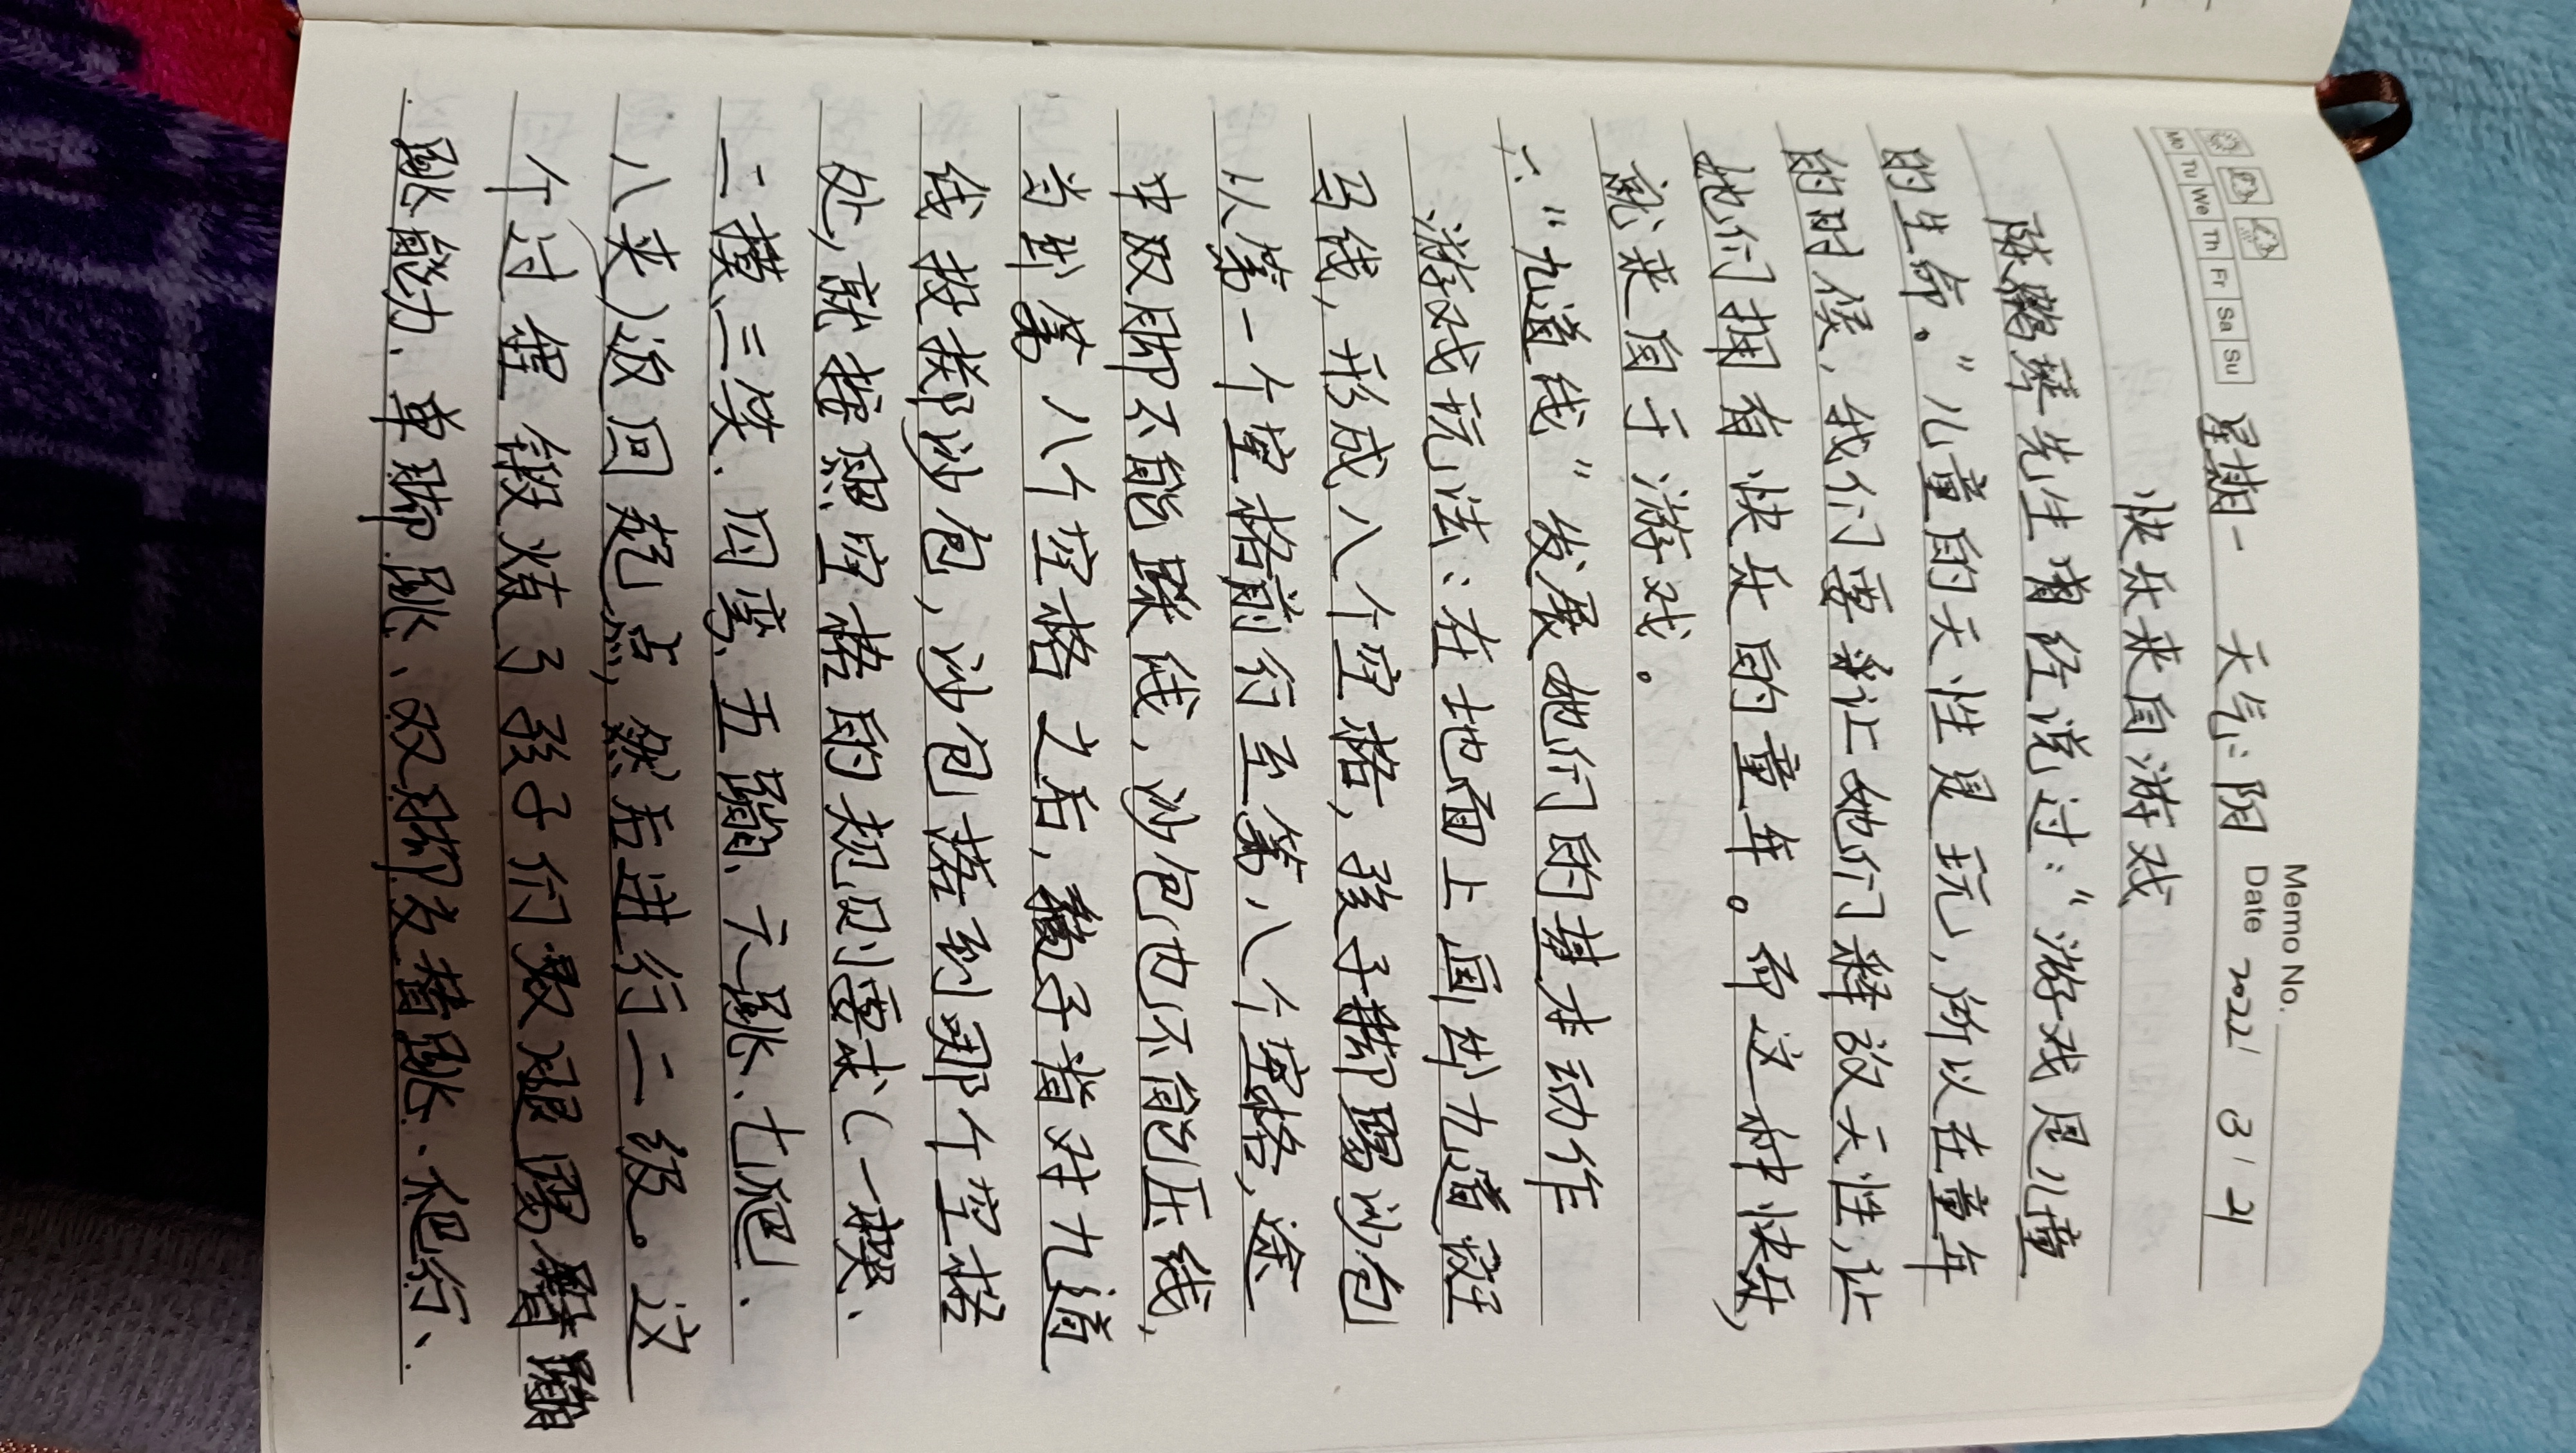 Memo No.
Mo Tu We Th Fr Sa Su
Date 2022 / 3 / 21
星期一 天气:阴
快乐来自游戏
陈鹤琴先生曾经说过:“游戏是儿童
的生命。”儿童的天性是玩,所以在童年
的时候,我们要让她们释放天性,让
她们拥有快乐的童年。而这种快乐,
就来自于游戏。
六、“九道线”发展她们的基本动作
游戏玩法:在地面上画出九道斑
马线,形成八个空格,孩子揣踢沙包
从第一个空格前行至第八个空格,途
中双脚不能踩线,沙包也不能压线,
当到第八个空格之后,孩子背对九道
线抛接沙包,沙包落到哪个空格
处,就按照空格的规则要求(一揆、
二摸、三笑、四弯、五蹦、六跳、七爬、
八来)返回起点,然后进行二级。这
个过程锻炼了孩子们最 腿踢 蹦
跳能力、单脚跳、双脚交替跳、爬行、